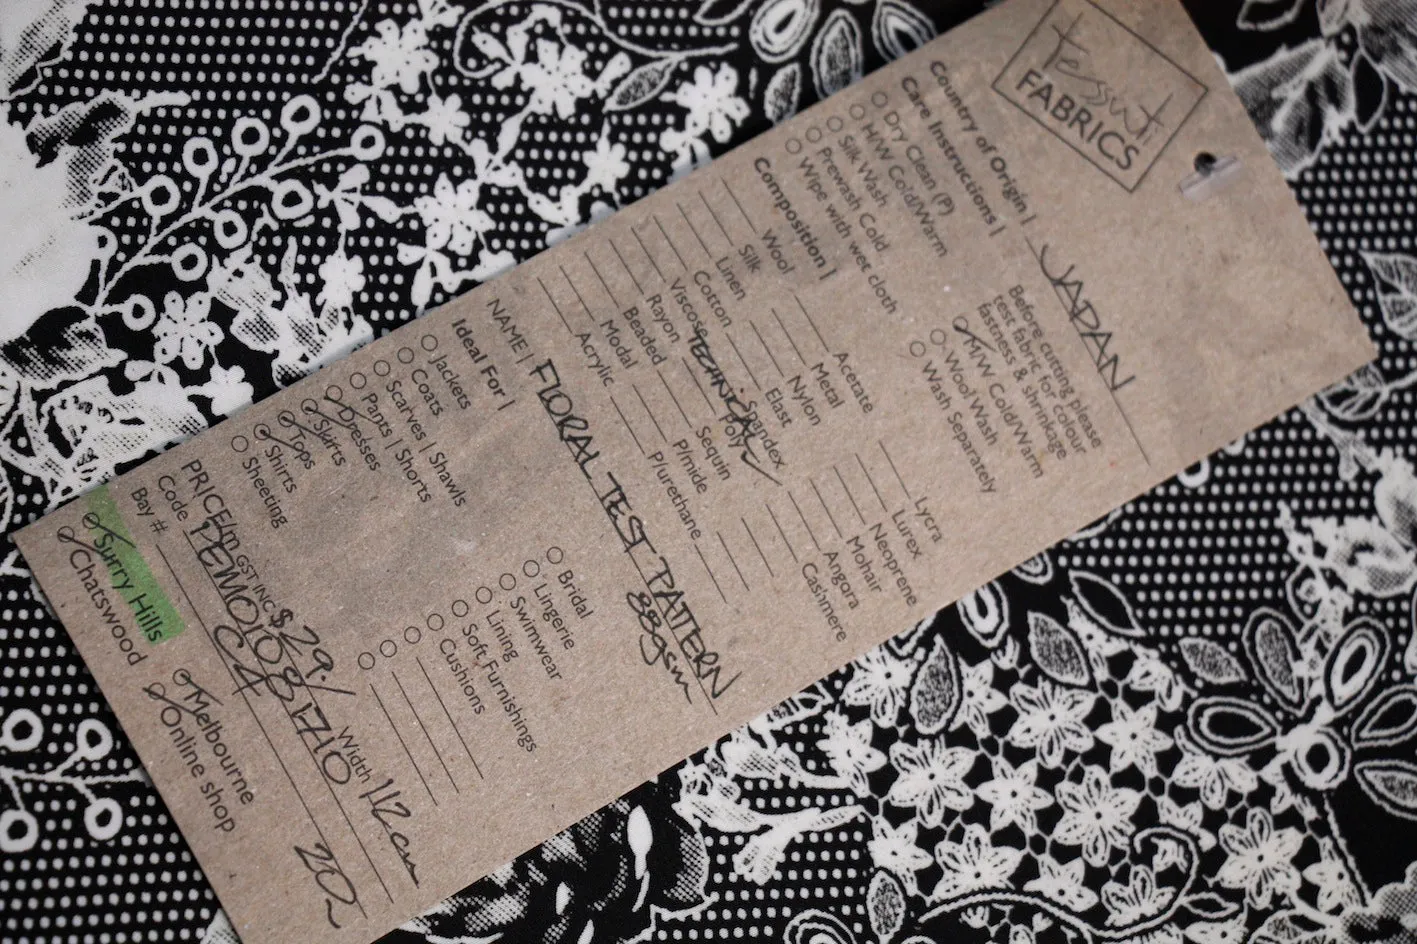 Tessuti
FABRICS
Country of Origin | JAPAN
Care Instructions |
Before cutting please
test fabric for colour
fastness & shrinkage
Dry Clean (P)
H/W Cold/Warm
Silk Wash
Prewash Cold
Wipe with wet cloth
M/W Cold/Warm
Wool Wash
Wash Separately
Composition |
Wool
Silk
Linen
Cotton
Viscose
Rayon
Beaded
Modal
Acrylic
Acetate
Metal
Nylon
Elast
Spandex
TECHNICAL
Poly
Sequin
P/mide
P/urethane
Lycra
Lurex
Neoprene
Mohair
Angora
Cashmere
NAME | FLORAL TEST PATTERN
88gsm
Ideal For |
Jackets
Coats
Scarves | Shawls
Pants | Shorts
Dresses
Skirts
Tops
Shirts
Sheeting
Bridal
Lingerie
Swimwear
Lining
Soft Furnishings
Cushions
PRICE/m GST INC $29./ Width 112cm
Code TEMO1081710
Bay # C4
20m
Surry Hills
Chatswood
Melbourne
Online shop